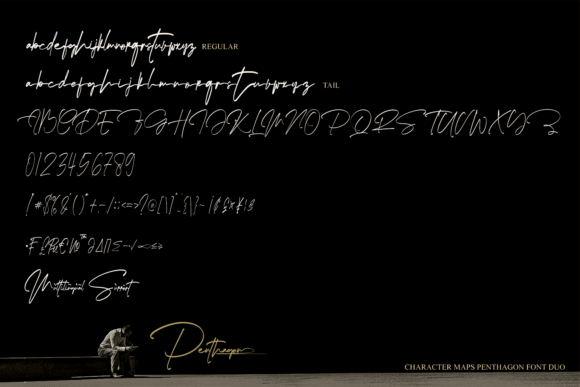 abcdefghijklmnopqrstuvwxyz REGULAR
abcdefghijklmnopqrstuvwxyz TAIL
ABCDEFGHIJKLMNOPQRSTUVWXYZ
0123456789
Multilingual Support
Penthagon
CHARACTER MAPS PENTHAGON FONT DUO